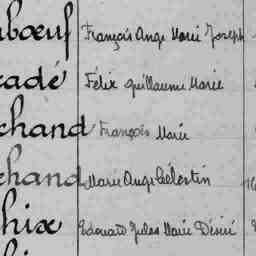 bœuf François Ange Marie Joseph
cadé Félix Guillaume Marie
chand François Marie
chand Marie Ange Célestin
hix Edouard Jules Marie Désiré